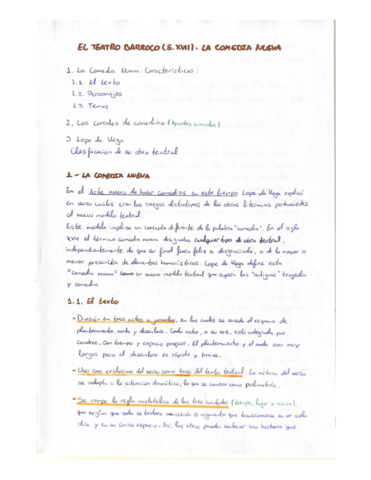 EL TEATRO BARROCO (S. XVII). LA COMEDIA NUEVA
1. La Comedia Nueva. Características:
1.1. El texto
1.2. Personajes
1.3. Temas
2. Los corrales de comedias (Apuntes a mano)
3. Lope de Vega
Clasificación de su obra teatral
1.- LA COMEDIA NUEVA
En el Arte nuevo de hacer comedias en este tiempo Lope de Vega explicó
en verso cuáles son los rasgos distintivos de las obras literarias pertenecientes
al nuevo modelo teatral.
Este modelo implica un concepto diferente de la palabra "comedia". En el siglo
XVII el término comedia nueva designaba cualquier tipo de obra teatral,
independientemente de que su final fuera feliz o desgraciado, o de la mayor o
menor presencia de elementos humorísticos. Lope de Vega define esta
"comedia nueva" como un nuevo modelo teatral que supera las "antiguas" tragedia
y comedia.
1.1. El texto
División en tres actos o jornadas, en los cuales se sucede el esquema de
planteamiento, nudo y desenlace. Cada acto, a su vez, está integrado por
cuadros, con tiempo y espacio propios. El planteamiento y el nudo son muy
largos pero el desenlace es rápido y breve.
Uso casi exclusivo del verso como base del texto teatral. La métrica del verso
se adapta a la situación dramática, lo que se conoce como polimetría.
Se rompe la regla aristotélica de las tres unidades (tiempo, lugar y acción),
que exigía que solo se tratara un argumento que transcurriese en un solo
día y en un único espacio. Así, las obras pueden contener una historia que